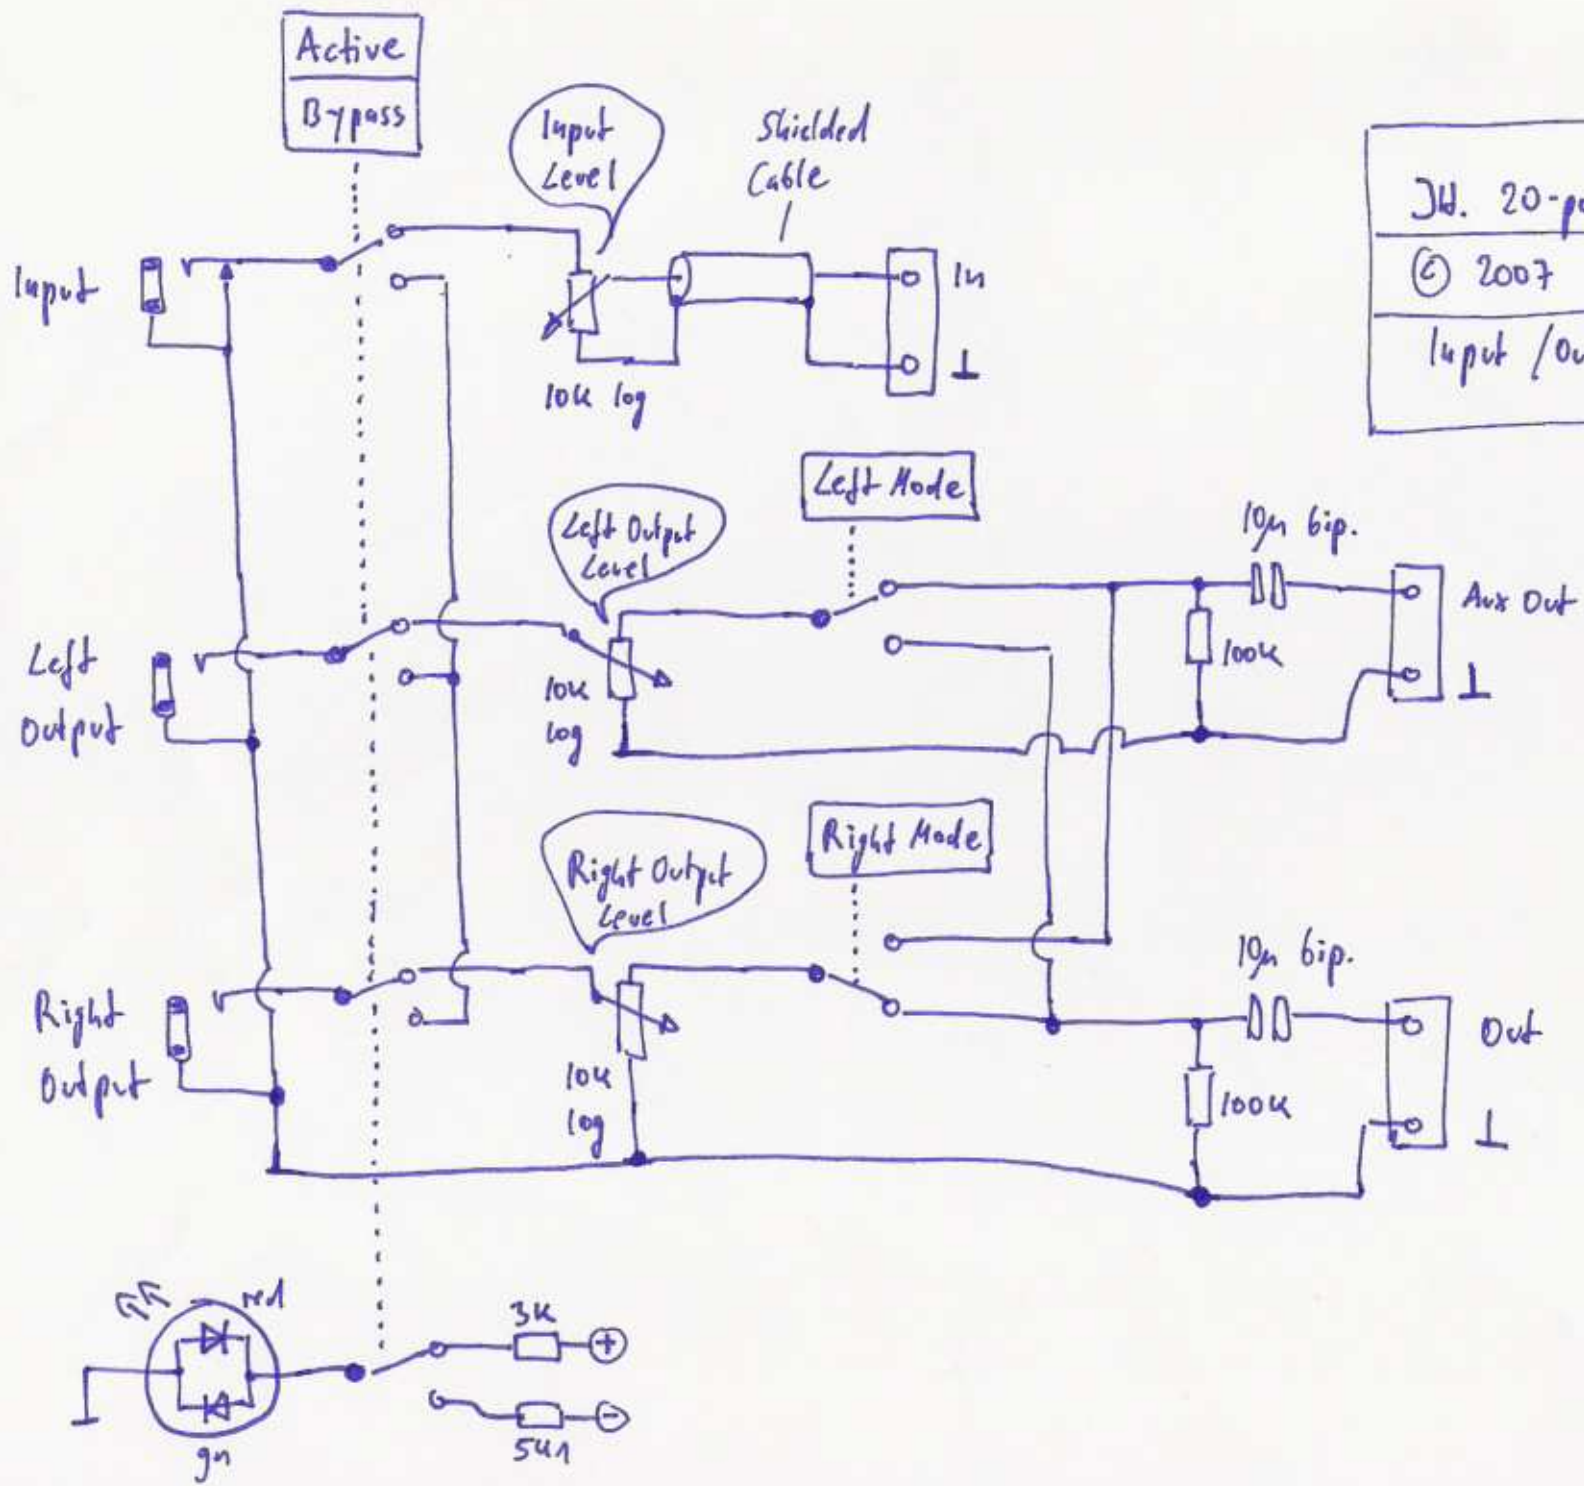 Active
Bypass
Input
Level
Shielded
Cable
JH. 20-p
© 2007
Input / Ou
Input
In
⊥
10K log
Left Mode
Left Output
Level
10µ bip.
Aux Out
Left
Output
10K
log
100K
⊥
Right Mode
Right Output
Level
10µ bip.
Right
Output
10K
log
100K
Out
⊥
red
3K
+
gn
5K1
-